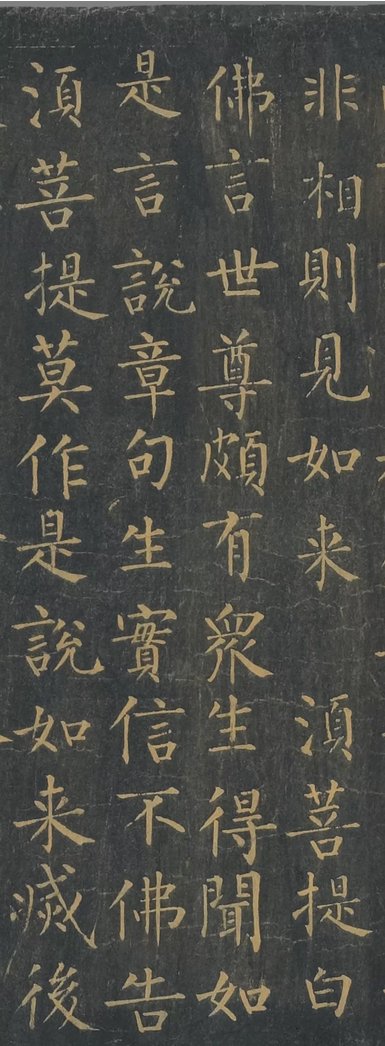 非相則見如来　須菩提白
佛言世尊頗有衆生得聞如
是言說章句生實信不佛告
須菩提莫作是說如来滅後